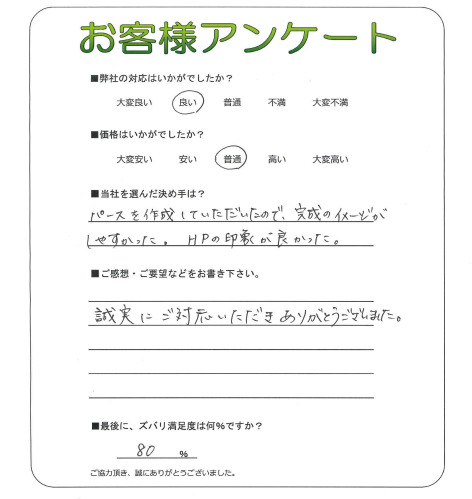 お客様アンケート
■弊社の対応はいかがでしたか？
大変良い 良い 普通 不満 大変不満
■価格はいかがでしたか？
大変安い 安い 普通 高い 大変高い
■当社を選んだ決め手は？
パースを作成していただいたので、完成のイメージが
しやすかった。 HPの印象が良かった。
■ご感想・ご要望などをお書き下さい。
誠実にご対応いただきありがとうございました。
■最後に、ズバリ満足度は何％ですか？
80 ％
ご協力頂き、誠にありがとうございました。